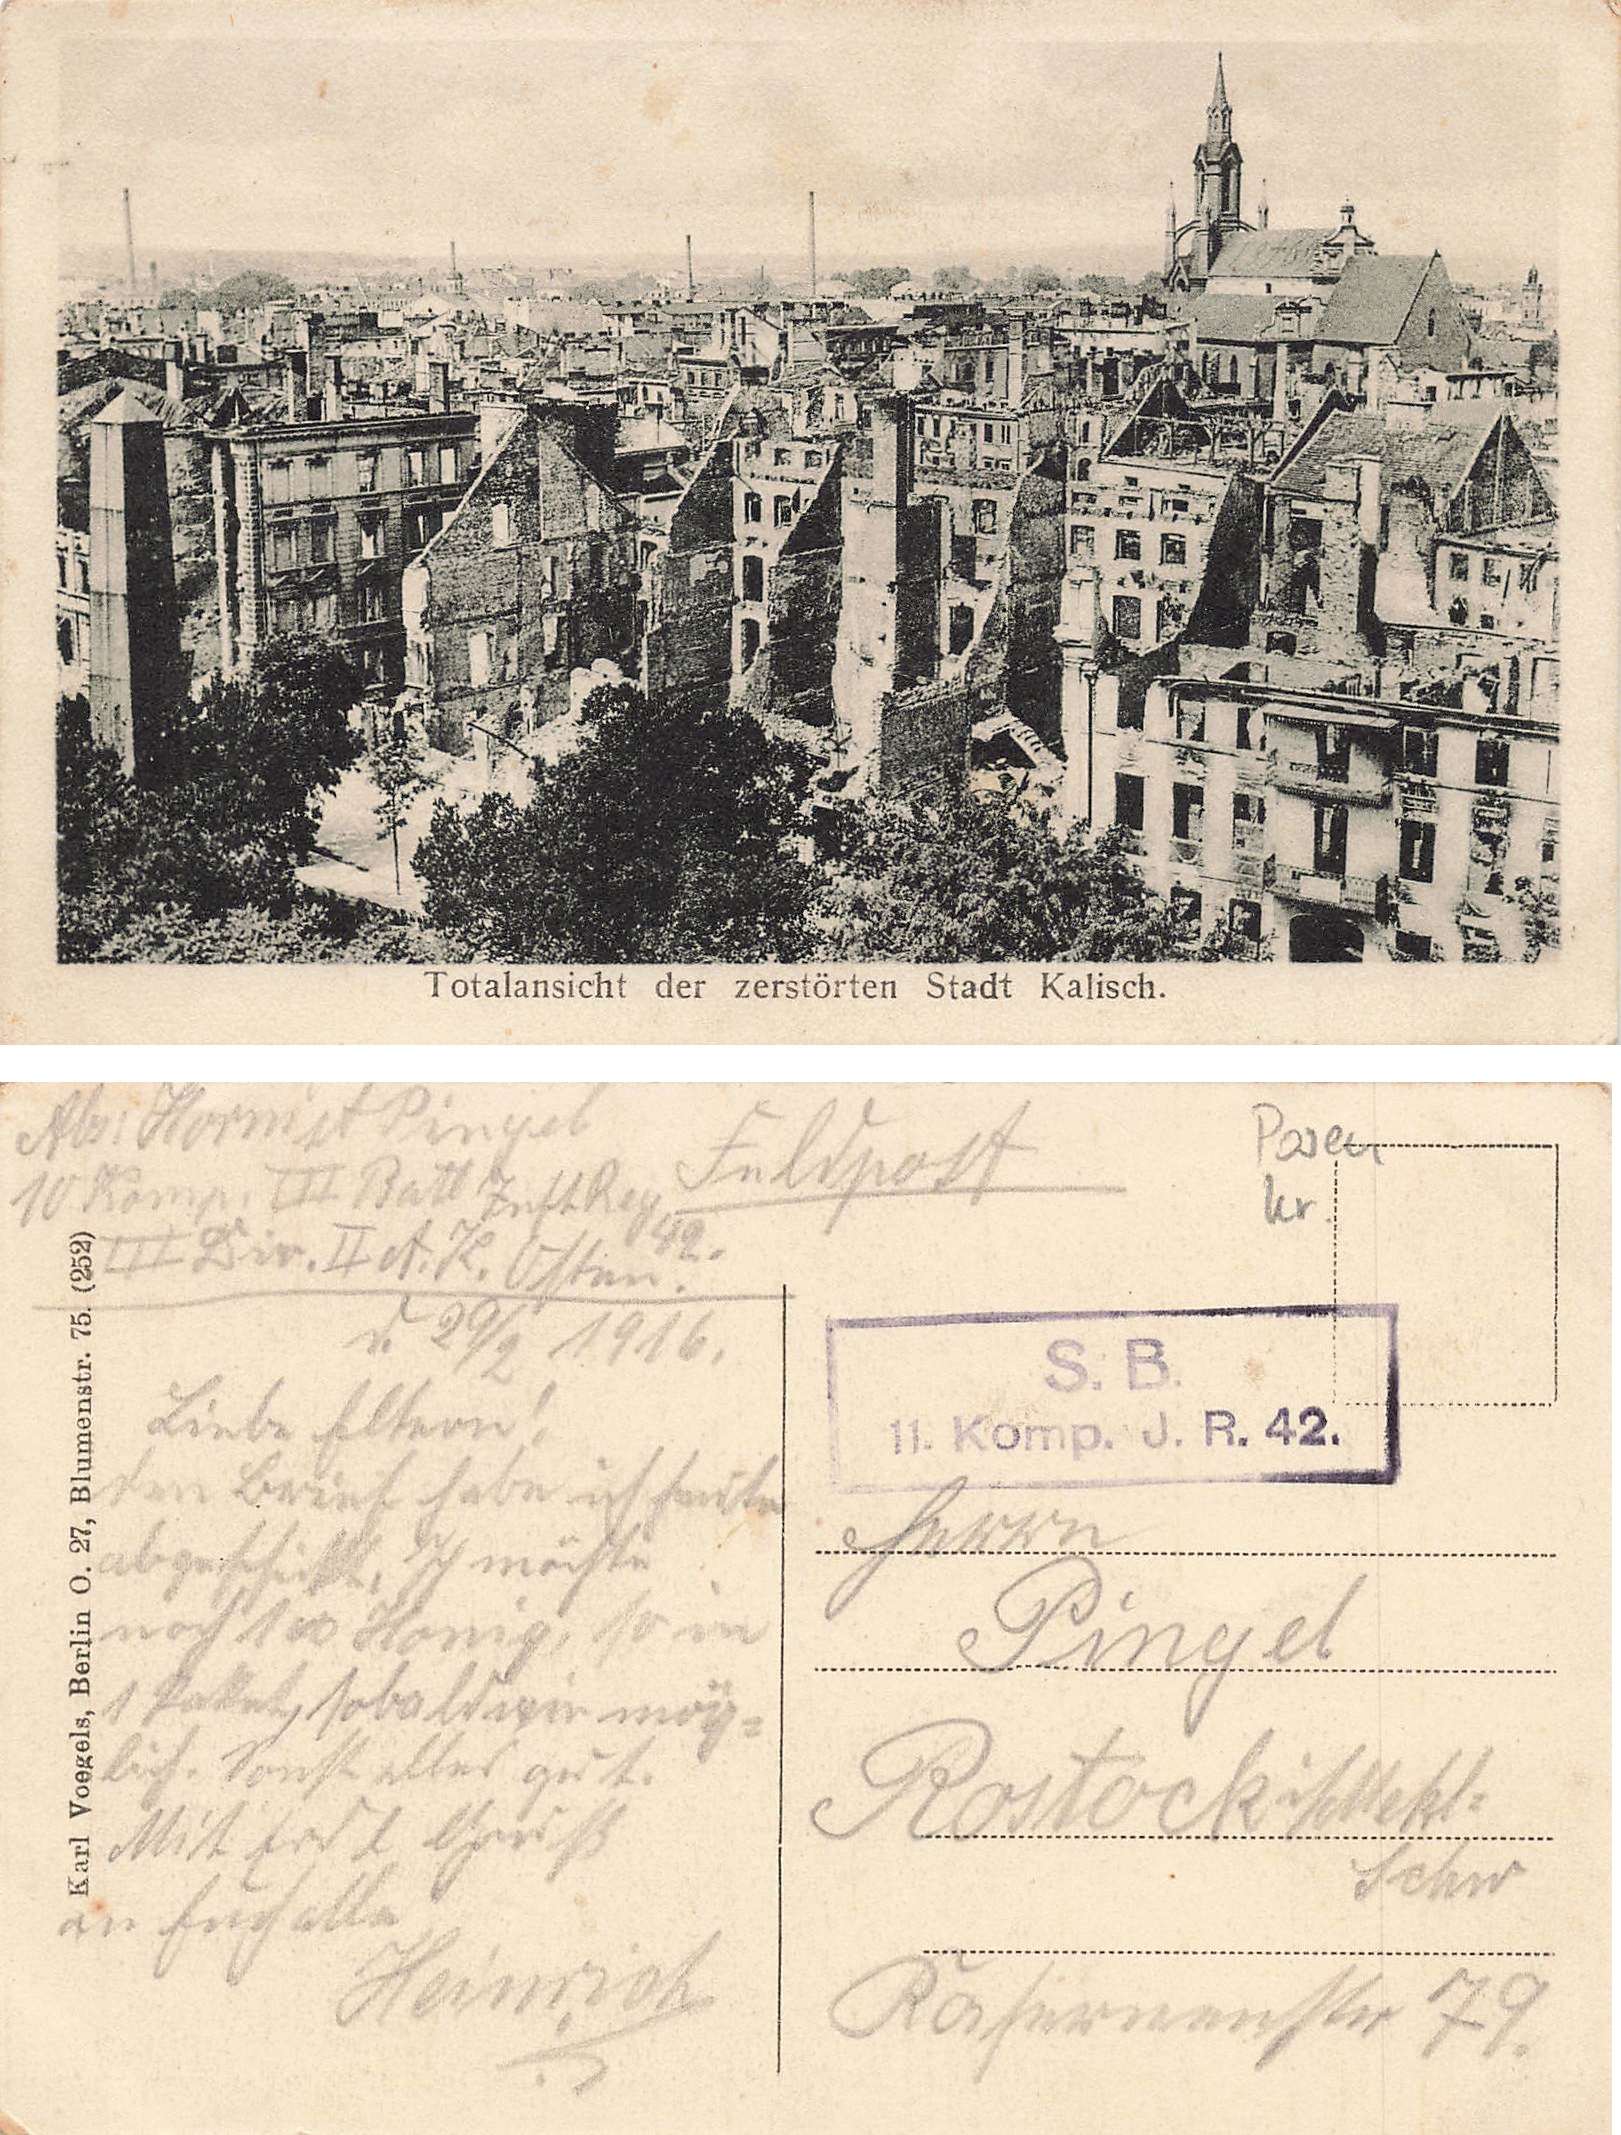 Totalansicht der zerstörten Stadt Kalisch.
Abs: Hornist Pingel
10 Komp. III Batl Inft Reg 42.
III Div. II A. K. Osten.
Feldpost
Posen
kr.
d. 29/2 1916.
Liebe Eltern!
den Brief habe ich heute
abgeschickt. Ich möchte
noch Honig, so in
1 Paket, sobald wie mög=
lich. Sonst alles gut.
Mit Gruß
an Euch alle
Heinrich
Karl Voegels, Berlin O. 27, Blumenstr. 75. (252)
S. B.
11. Komp. J. R. 42.
Herrn
Pingel
Rostock i/Mekl=
Schw
Kasernenstr 79.